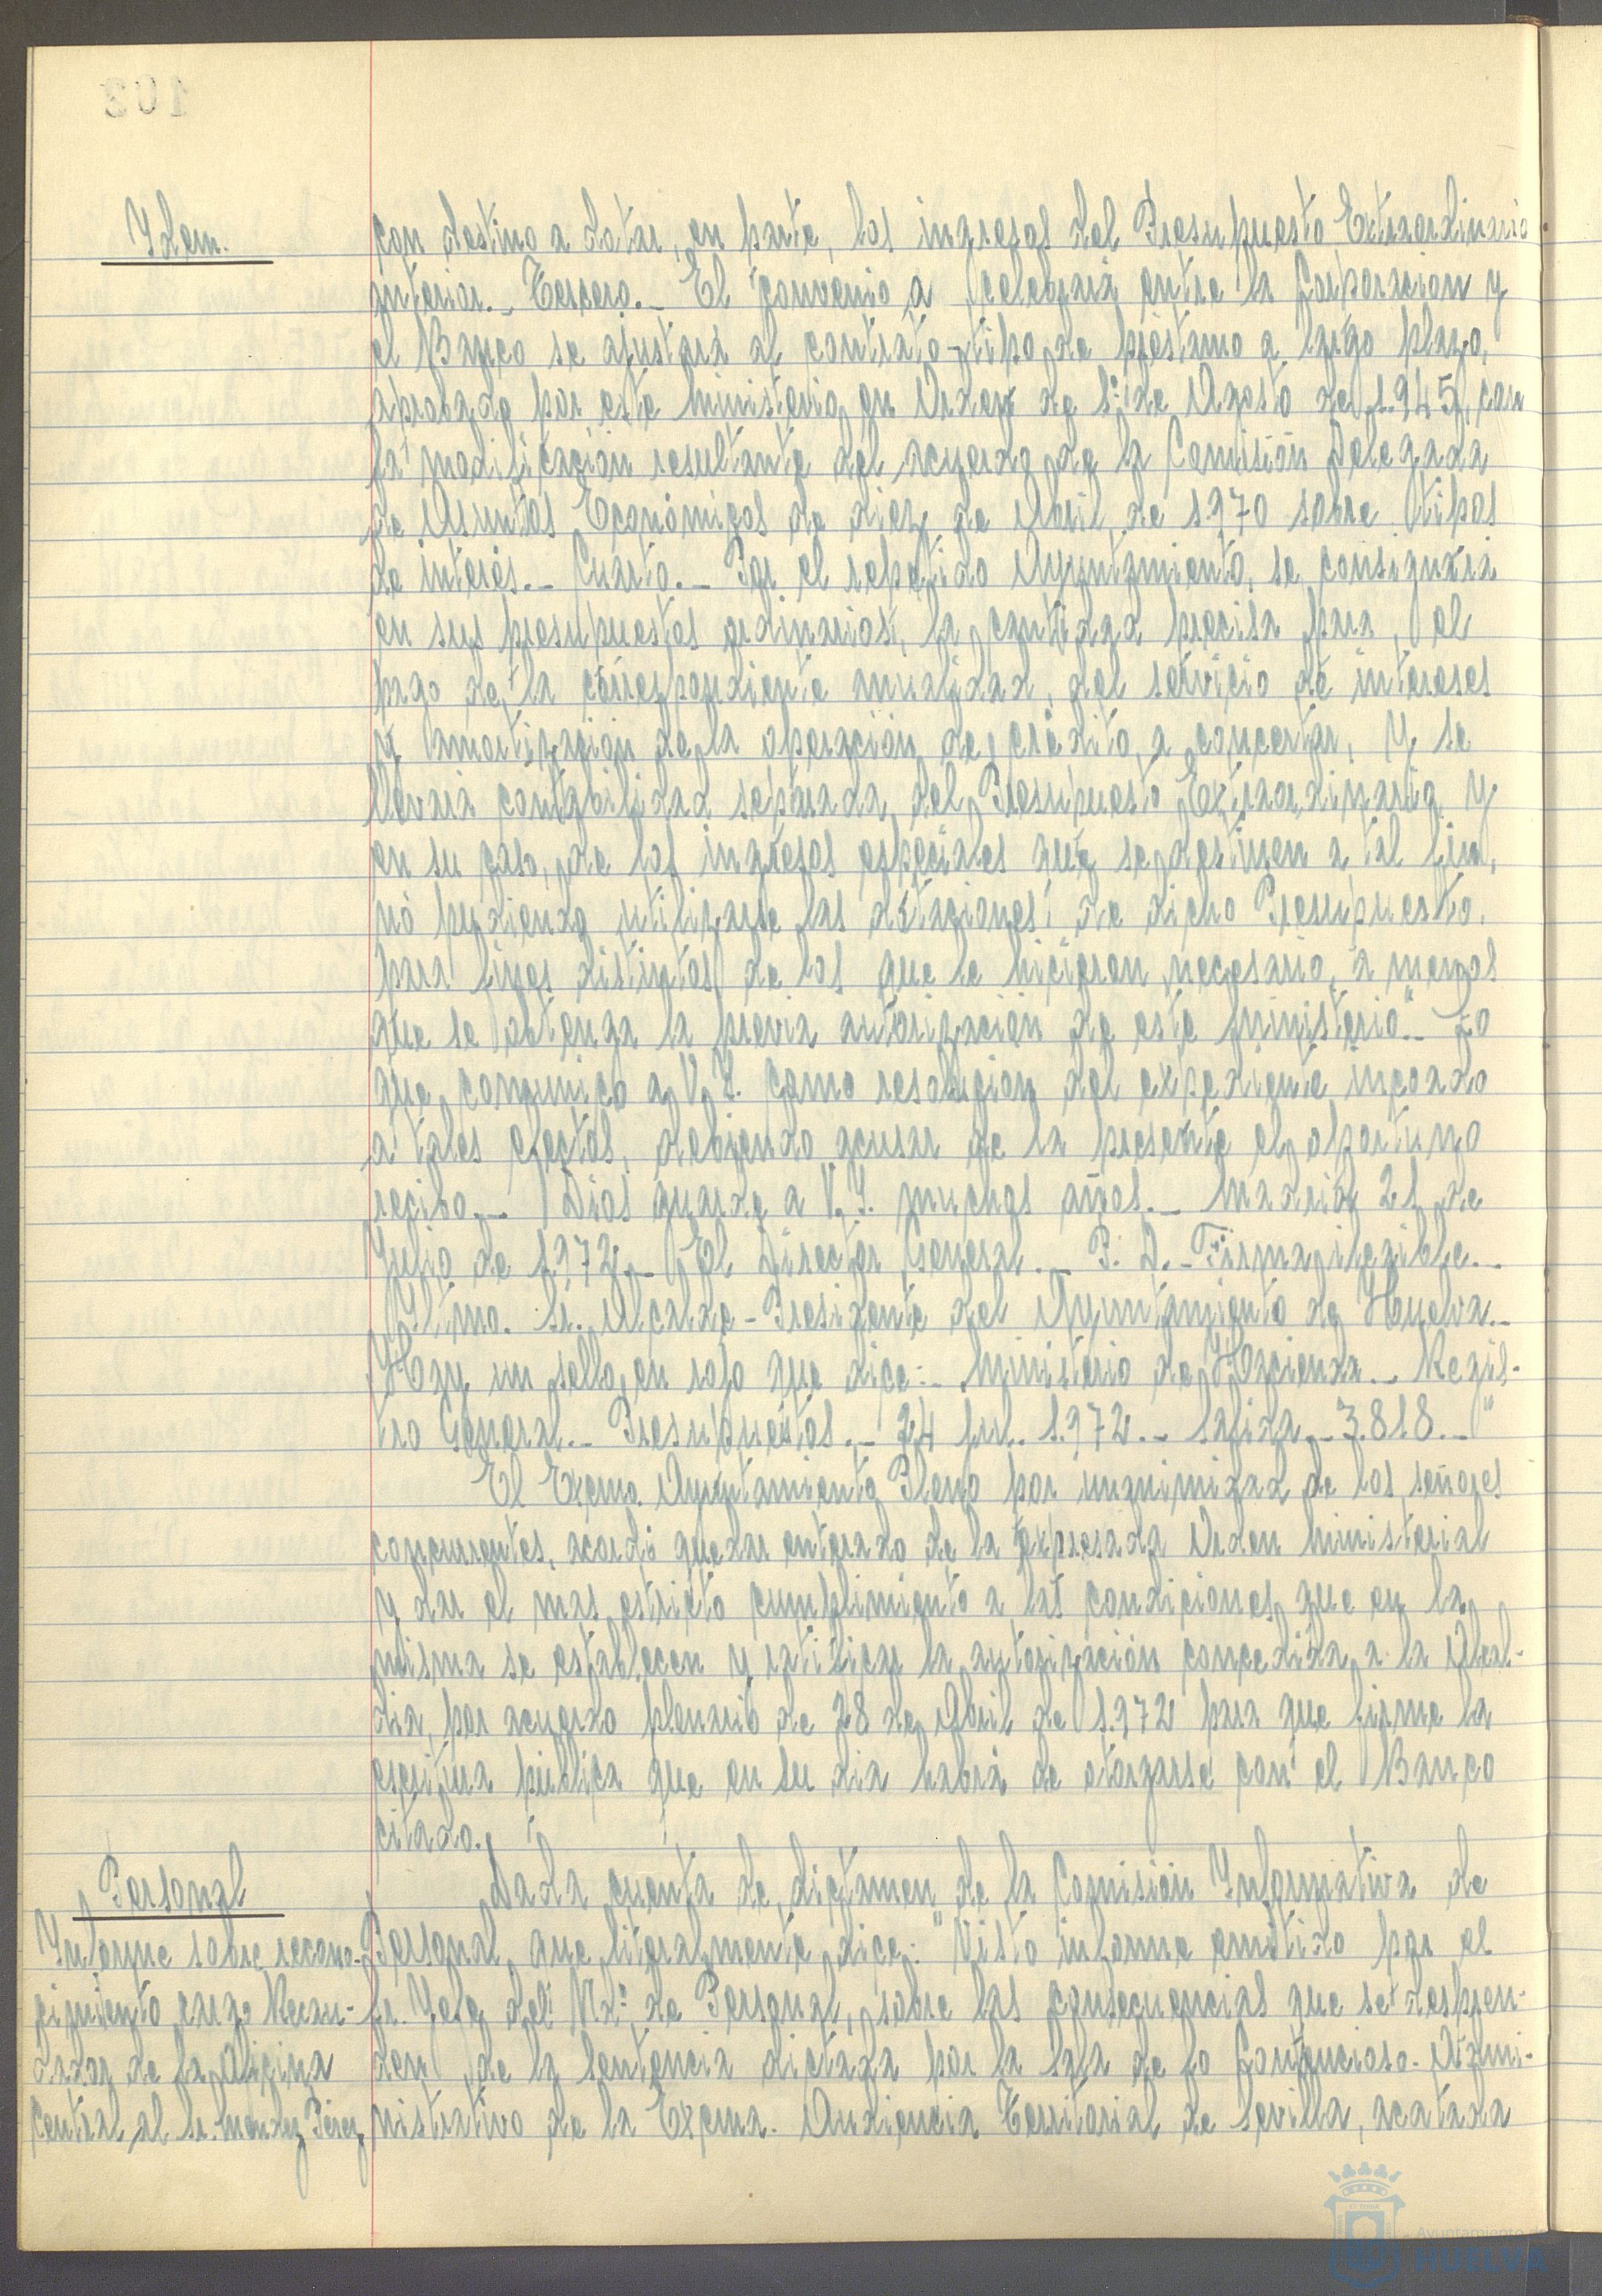 Ydem.
con destino a dotar, en parte, los ingresos del Presupuesto Extraordinario
anterior.- Tercero.- El convenio a celebrará entre la Corporacion y
el Banco se ajustará al contrato-tipo de préstamo a largo plazo,
aprobado por este Ministerio en Orden de 1º de Agosto de 1.945, con
la modificación resultante del acuerdo de la Comisión Delegada
de Asuntos Económicos de diez de Abril de 1970 sobre tipos
de interés.- Cuarto.- Por el repetido Ayuntamiento, se consignará
en sus presupuestos ordinarios, la cantidad precisa para el
pago de la correspondiente anualidad, del servicio de intereses
y amortización de la operación de crédito, a concertar, y se
llevará contabilidad separada del Presupuesto Extraordinario y
en su caso, de los ingresos especiales que se destinen a tal fin,
nó pudiendo utilizarse las dotaciones de dicho Presupuesto,
para fines distintos de los que le hicieron necesario, a menos
que se obtenga la previa autorización de este Ministerio".- Lo
que comunico a V. Y. como resolución del expediente incoado
a tales efectos, debiendo acusar de la presente el oportuno
recibo.- Dios guarde a V. Y. muchos años.- Madrid, 21 de
Julio de 1.972.- El Director General.- P. D.- Firma ilegible.-
Yltmo. Sr. Alcalde-Presidente del Ayuntamiento de Huelva.-
Hay un sello en rojo que dice:- Ministerio de Hacienda.- Regis-
tro General.- Presupuestos.- 24 Jul. 1.972.- Salida.- 3.818.-"
El Excmo. Ayuntamiento Pleno por unanimidad de los señores
concurrentes, acordó quedar enterado de la expresada Orden Ministerial
y dar el mas estricto cumplimiento a las condiciones que en la
misma se establecen y ratificar la autorización concedida a la Alcal-
dia, por acuerdo plenario de 28 de Abril de 1.972 para que firme la
escritura pública que en su dia habrá de otorgarse con el Banco
citado.
Personal
Informe sobre recono-
cimiento cargo Recau-
dador de la Oficina
Central al Sr. Mendez Pérez
Dada cuenta de dictamen de la Comisión Ynformativa de
Personal, que literalmente dice: "Visto informe emitido por el
Sr. Jefe del Ndº de Personal, sobre las consecuencias que se despren-
den de la Sentencia dictada por la Sala de lo Contencioso-Admi-
nistrativo de la Excma. Audiencia Territorial de Sevilla, acatada
Ayuntamiento de
HUELVA